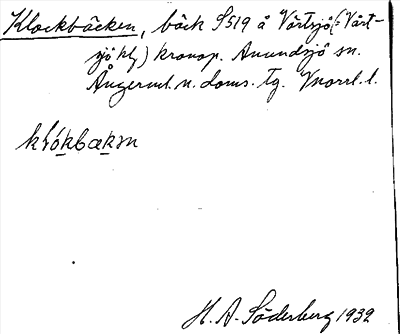 Klockbäcken, bäck S 519 å Vårtsjö (=Vårt-
sjöhtg) kronop. Anundsjö sn.
Ångerml. n. doms. tg. Vnorrl. l.
klókbækən
H. A. Söderberg 1932